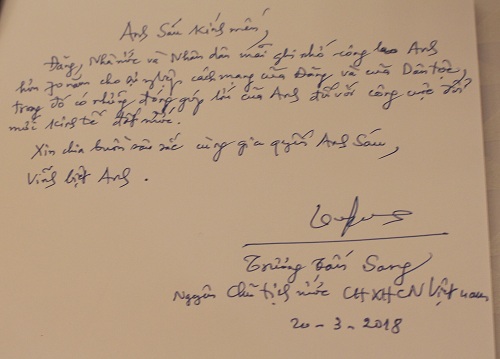 Anh Sáu kính mến,
Đảng, Nhà nước và Nhân dân mãi ghi nhớ công lao Anh
hơn 70 năm cho sự nghiệp cách mạng của Đảng và của Dân tộc,
trong đó có những đóng góp lớn của Anh đối với công cuộc đổi
mới kinh tế đất nước.
Xin chia buồn sâu sắc cùng gia quyến Anh Sáu,
Vĩnh biệt Anh.
Trương Tấn Sang
Nguyên Chủ tịch nước CHXHCN Việt nam
20-3-2018